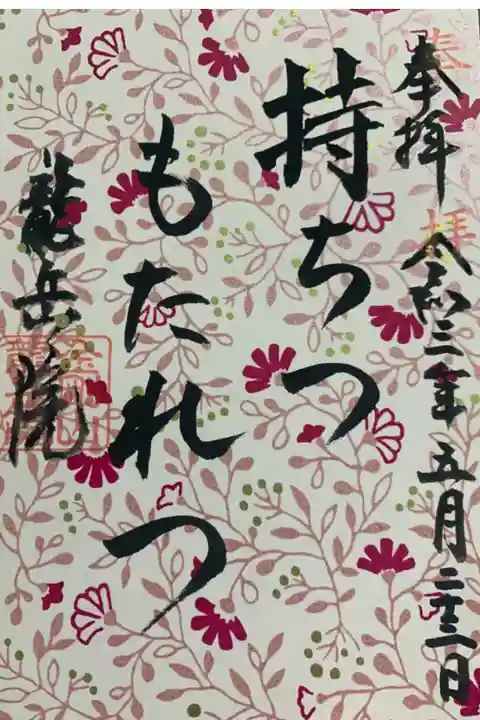 奉拝 令和三年五月二十三日
持ちつ
もたれつ
龍岳院